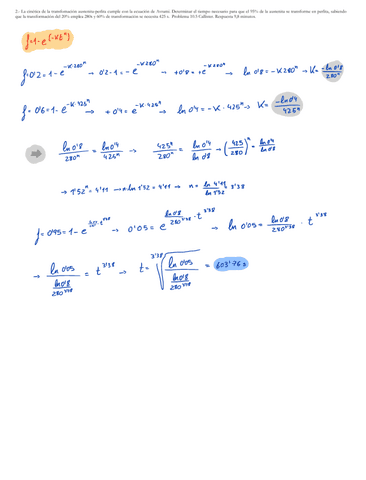 2.- La cinética de la transformación austenita-perlita cumple con la ecuación de Avrami. Determinar el tiempo necesario para que el 95% de la austenita se transforme en perlita, sabiendo
que la transformación del 20% emplea 280s y 60% de transformación se necesita 425 s. Problema 10.5 Callister. Respuesta 9,8 minutos.
f=1-e^(-Kt^n)
f=0'2=1-e^(-K·280^n) → 0'2-1=-e^(-K·280^n) → +0'8=+e^(-K·280^n) → ln 0'8=-K·280^n → K=-ln0'8/280^n
f=0'6=1-e^(-K·425^n) → +0'4=e^(-K·425^n) → ln 0'4=-K·425^n → K=-ln0'4/425^n
⇒ ln 0'8/280^n = ln 0'4/425^n → 425^n/280^n = ln 0'4/ln 0'8 → (425/280)^n = ln 0'4/ln 0'8
→ 1'52^n=4'11 → n·ln 1'52=4'11 → n= ln 4'11/ln 1'52 3'38
f=0'95=1-e^(ln0'8/280^3'38 ·t^3'38) → 0'05=e^(ln0'8/280^3'38 ·t^3'38) → ln 0'05=ln 0'8/280^3'38 · t^3'38
→ ln 0'05/(ln 0'8/280^3'38) = t^3'38 → t= 3'38√(ln 0'05/(ln 0'8/280^3'38)) = 603'76s